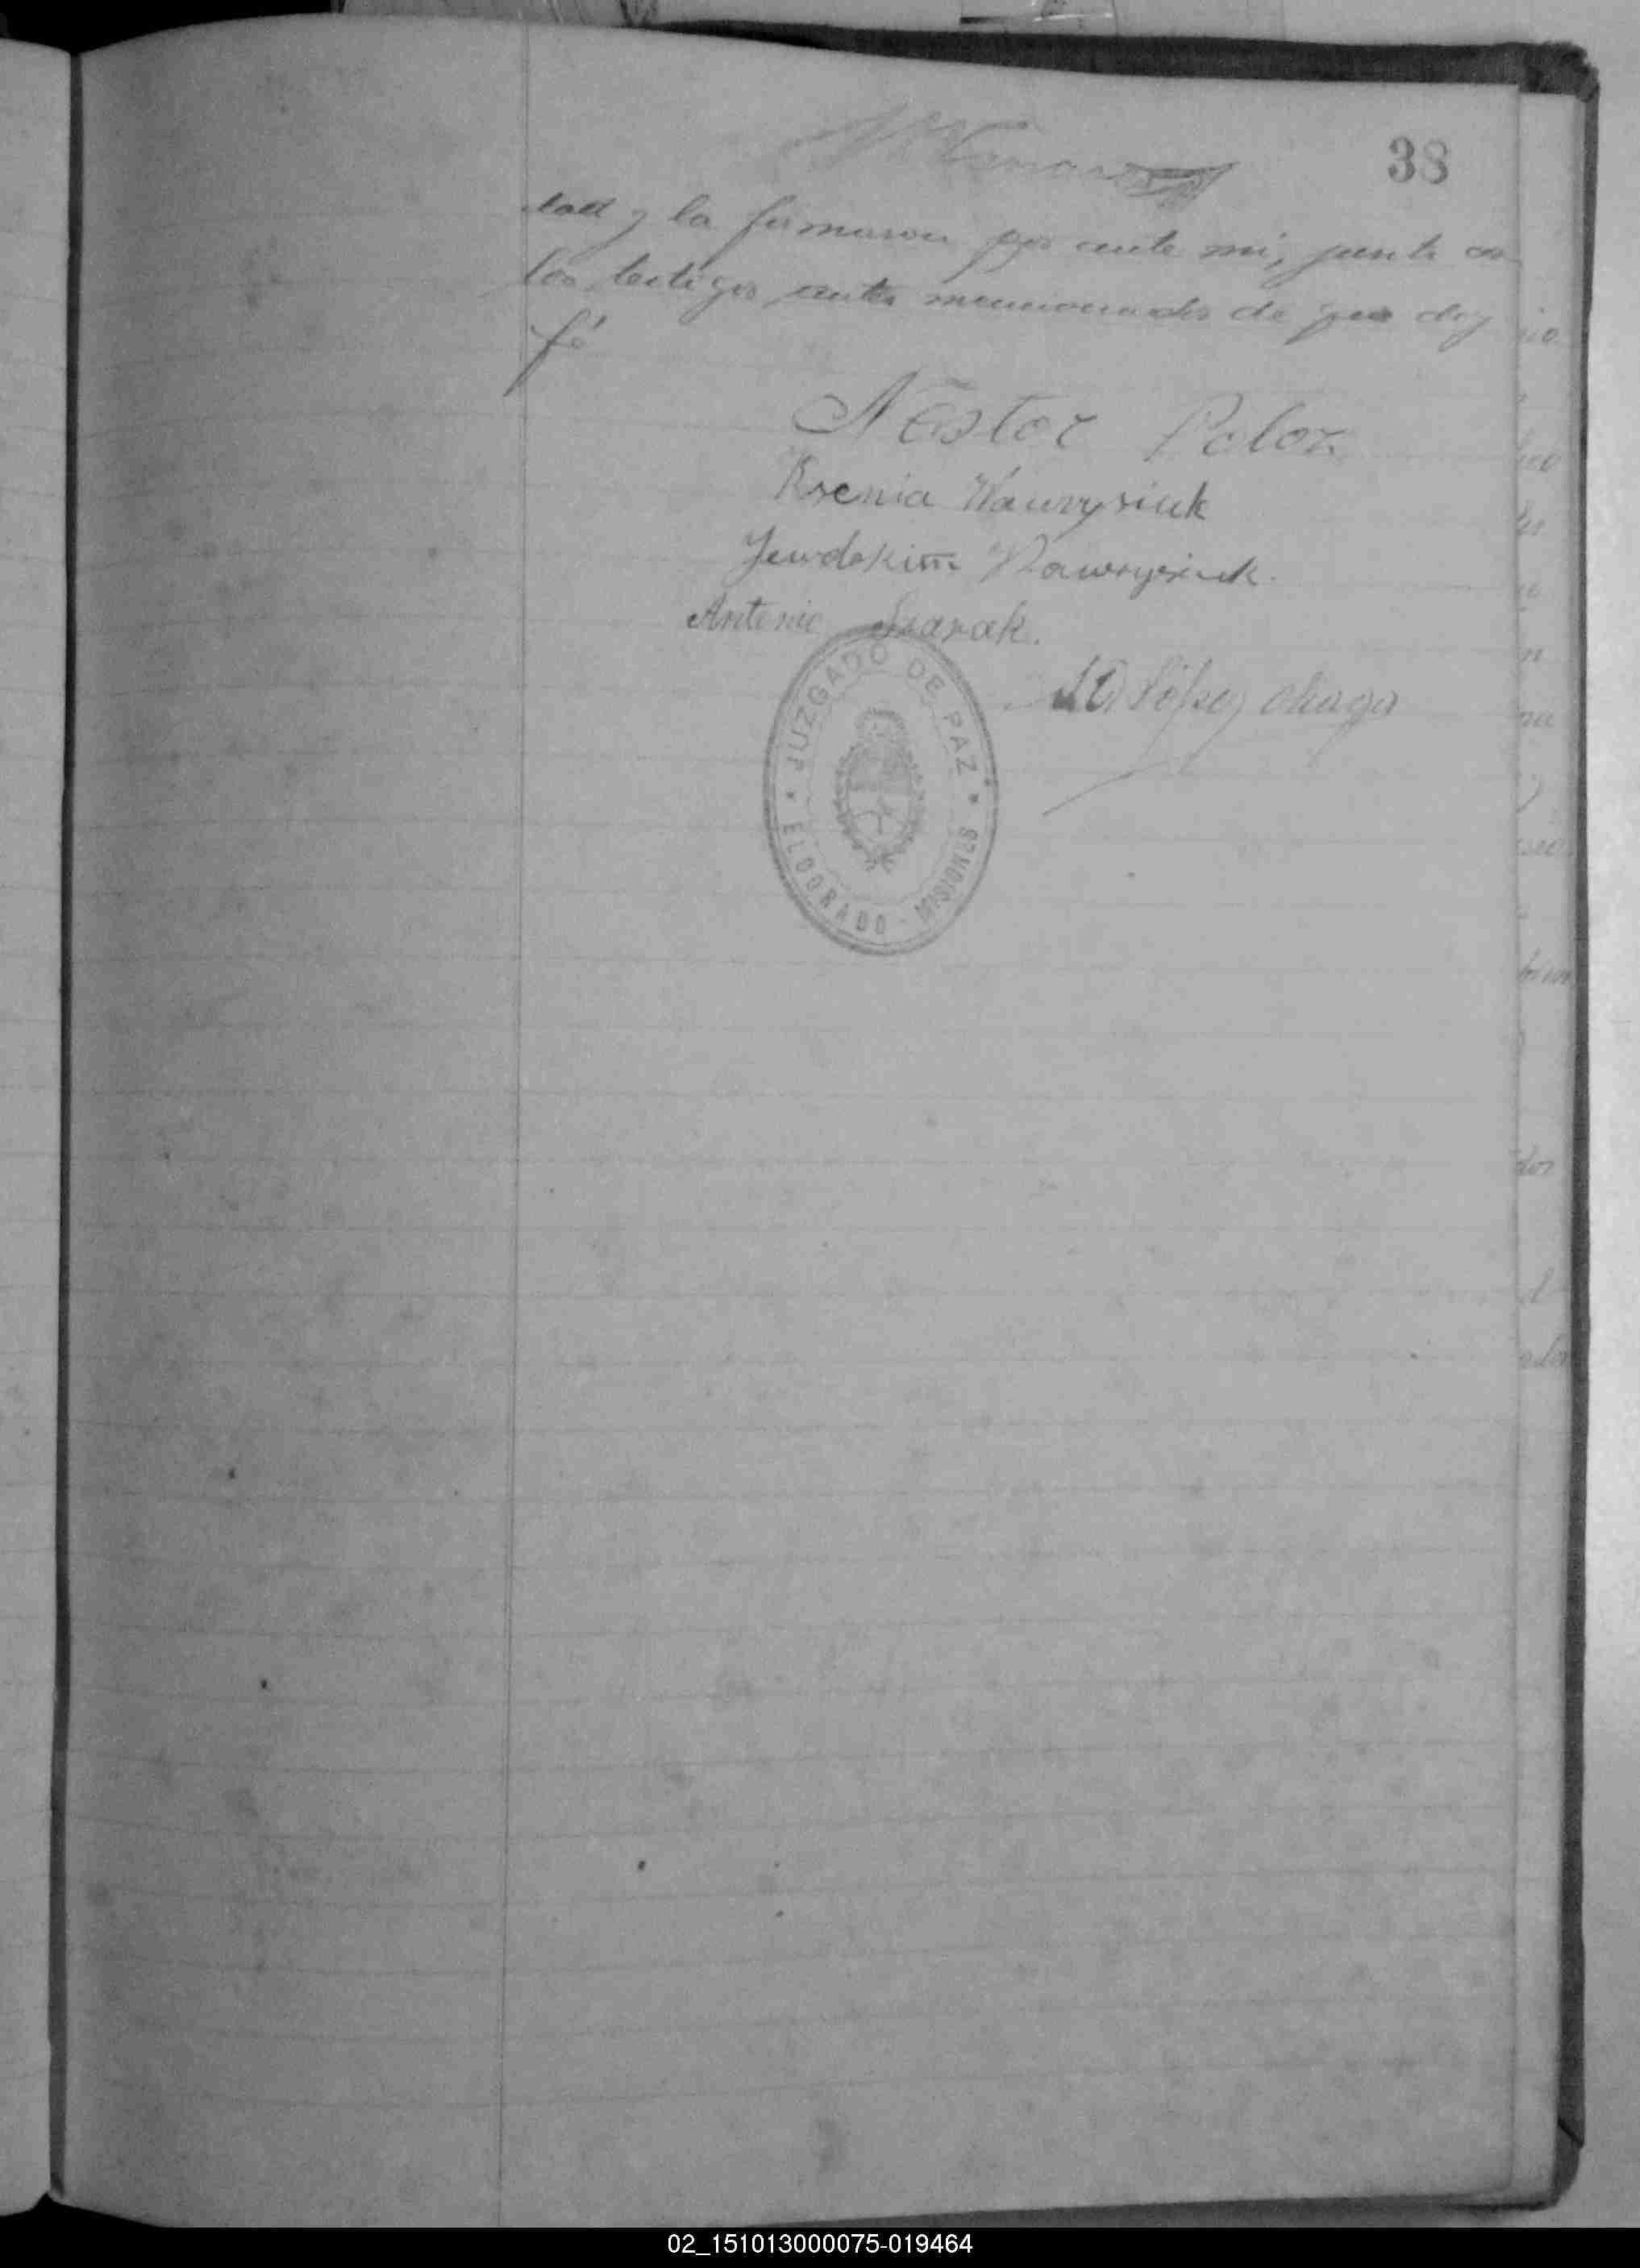 38
tad y la firmaron por ante mi, junto con
los testigos antes mencionados de que doy
fé
Néstor Poloz
Ksenia Wawrysiuk
Jewdokim Wawrysiuk.
Antonio Szarak.
López Chaga
JUZGADO DE PAZ
ELDORADO - MISIONES
02_151013000075-019464